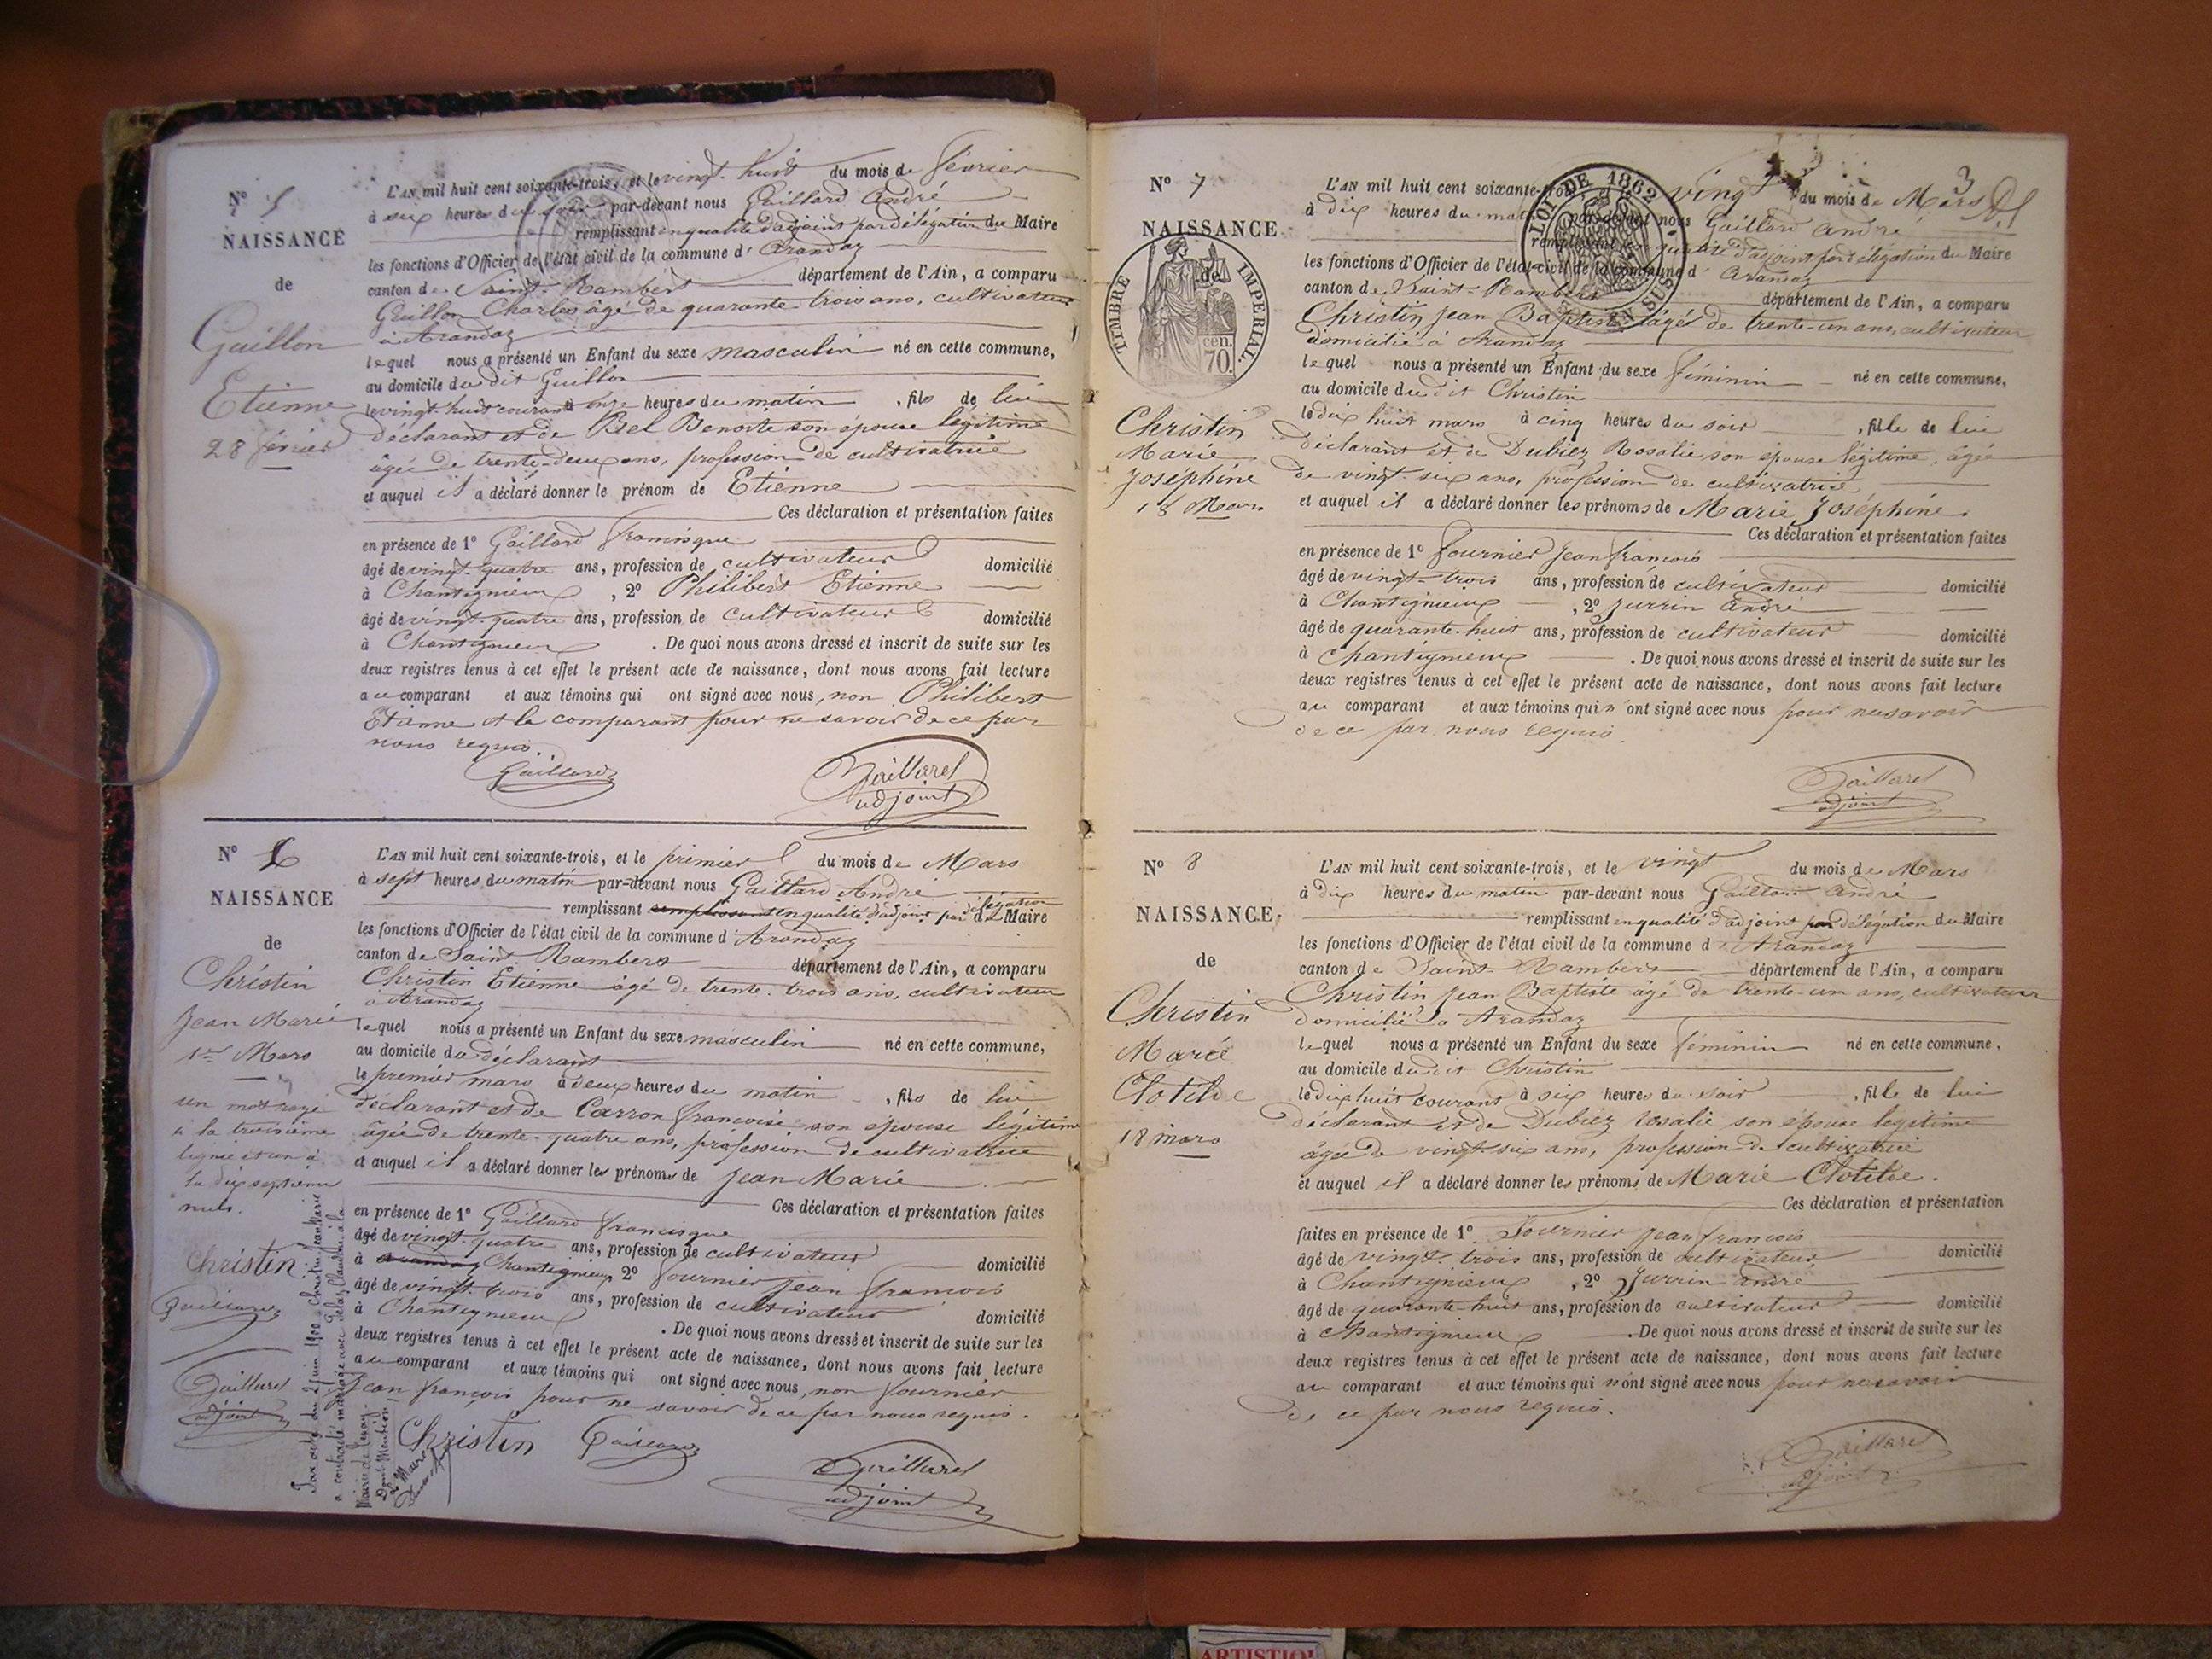 N° 5
NAISSANCE
de
Guillon
Etienne
28 février
L'AN mil huit cent soixante-trois, et le vingt-huit du mois de février
à six heures du soir par-devant nous Gaillard André
remplissant en qualité d'adjoint par délégation du Maire
les fonctions d'Officier de l'état civil de la commune d'Arandaz
canton de Saint-Rambert département de l'Ain, a comparu
Guillon Charles âgé de quarante-trois ans, cultivateur
à Arandaz
lequel nous a présenté un Enfant du sexe masculin né en cette commune,
au domicile du dit Guillon
le vingt huit courant à onze heures du matin, fils de lui
déclarant et de Bel Benoite son épouse légitime
âgée de trente-deux ans, profession de cultivatrice
et auquel il a déclaré donner le prénom de Etienne
Ces déclaration et présentation faites
en présence de 1° Gaillard francisque
âgé de vingt-quatre ans, profession de cultivateur domicilié
à Chantignieux, 2° Philibert Etienne
âgé de vingt-quatre ans, profession de cultivateur domicilié
à Chantignieux. De quoi nous avons dressé et inscrit de suite sur les
deux registres tenus à cet effet le présent acte de naissance, dont nous avons fait lecture
au comparant et aux témoins qui ont signé avec nous, non Philibert
Etienne et le comparant pour ne savoir de ce par
nous requis.
Gaillard
Gaillard
adjoint
N° 6
NAISSANCE
de
Christin
Jean Marie
1er Mars
un mot rayé
à la troisième
ligne et un à
la dix septième
nuls.
Christin
Gaillard
Gaillard
adjoint
Par acte du 2 juin 1900 Christin Jean Marie
a contracté mariage avec Claudine à la
Mairie de
Dont Mention
Le Maire
L'AN mil huit cent soixante-trois, et le premier du mois de Mars
à sept heures du matin par-devant nous Gaillard André
remplissant remplissant en qualité d'adjoint par délégation du Maire
les fonctions d'Officier de l'état civil de la commune d'Arandaz
canton de Saint Rambert département de l'Ain, a comparu
Christin Etienne âgé de trente-trois ans, cultivateur
à Arandaz
lequel nous a présenté un Enfant du sexe masculin né en cette commune,
au domicile du déclarant
le premier mars à deux heures du matin, fils de lui
déclarant et de Carron françoise son épouse légitime
âgée de trente-quatre ans, profession de cultivatrice
et auquel il a déclaré donner les prénoms de Jean Marie
Ces déclaration et présentation faites
en présence de 1° Gaillard francisque
âgé de vingt-quatre ans, profession de cultivateur domicilié
à Arandaz Chantignieux 2° fournier jean françois
âgé de vingt-trois ans, profession de cultivateur domicilié
à Chantignieux. De quoi nous avons dressé et inscrit de suite sur les
deux registres tenus à cet effet le présent acte de naissance, dont nous avons fait lecture
au comparant et aux témoins qui ont signé avec nous, non fournier
Jean françois pour ne savoir de ce par nous requis.
Christin Gaillard
Gaillard
adjoint
3
N° 7
NAISSANCE
de
TIMBRE IMPERIAL.
cen. 70.
LOI DE 1862
EN SUS
Christin
Marie
Joséphine
18 Mars
L'AN mil huit cent soixante-trois, et le vingt du mois de Mars
à dix heures du matin par-devant nous Gaillard André
remplissant en qualité d'adjoint par délégation du Maire
les fonctions d'Officier de l'état-civil de la commune d'Arandaz
canton de Saint-Rambert département de l'Ain, a comparu
Christin Jean Baptiste âgé de trente-un ans, cultivateur
domicilié à Arandaz
lequel nous a présenté un Enfant du sexe féminin né en cette commune,
au domicile dudit Christin
le dix huit mars à cinq heures du soir, fille de lui
déclarant et de Dubiez Rosalie son épouse légitime, âgée
de vingt-six ans, profession de cultivatrice
et auquel il a déclaré donner les prénoms de Marie Joséphine.
Ces déclaration et présentation faites
en présence de 1° fournier jean françois
âgé de vingt-trois ans, profession de cultivateur domicilié
à Chantignieux, 2° Jurrin André
âgé de quarante-huit ans, profession de cultivateur domicilié
à Chantignieux. De quoi nous avons dressé et inscrit de suite sur les
deux registres tenus à cet effet le présent acte de naissance, dont nous avons fait lecture
au comparant et aux témoins qui n'ont signé avec nous pour ne savoir
de ce par nous requis.
Gaillard
adjoint
N° 8
NAISSANCE
de
Christin
Marie
Clotilde
18 mars
L'AN mil huit cent soixante-trois, et le vingt du mois de Mars
à dix heures du matin par-devant nous Gaillard André
remplissant en qualité d'adjoint par délégation du Maire
les fonctions d'Officier de l'état civil de la commune d'Arandaz
canton de Saint-Rambert département de l'Ain, a comparu
Christin Jean Baptiste âgé de trente-un ans, cultivateur
domicilié à Arandaz
lequel nous a présenté un Enfant du sexe féminin né en cette commune,
au domicile dudit Christin
le dix huit courant à six heures du soir, fille de lui
déclarant et de Dubiez rosalie son épouse légitime
âgée de vingt-six ans, profession de cultivatrice
et auquel il a déclaré donner les prénoms de Marie Clotilde.
Ces déclaration et présentation
faites en présence de 1° Fournier jean françois
âgé de vingt-trois ans, profession de cultivateur domicilié
à Chantignieux, 2° Jurrin André
âgé de quarante-huit ans, profession de cultivateur domicilié
à Chantignieux. De quoi nous avons dressé et inscrit de suite sur les
deux registres tenus à cet effet le présent acte de naissance, dont nous avons fait lecture
au comparant et aux témoins qui n'ont signé avec nous pour ne savoir
de ce par nous requis.
Gaillard
adjoint